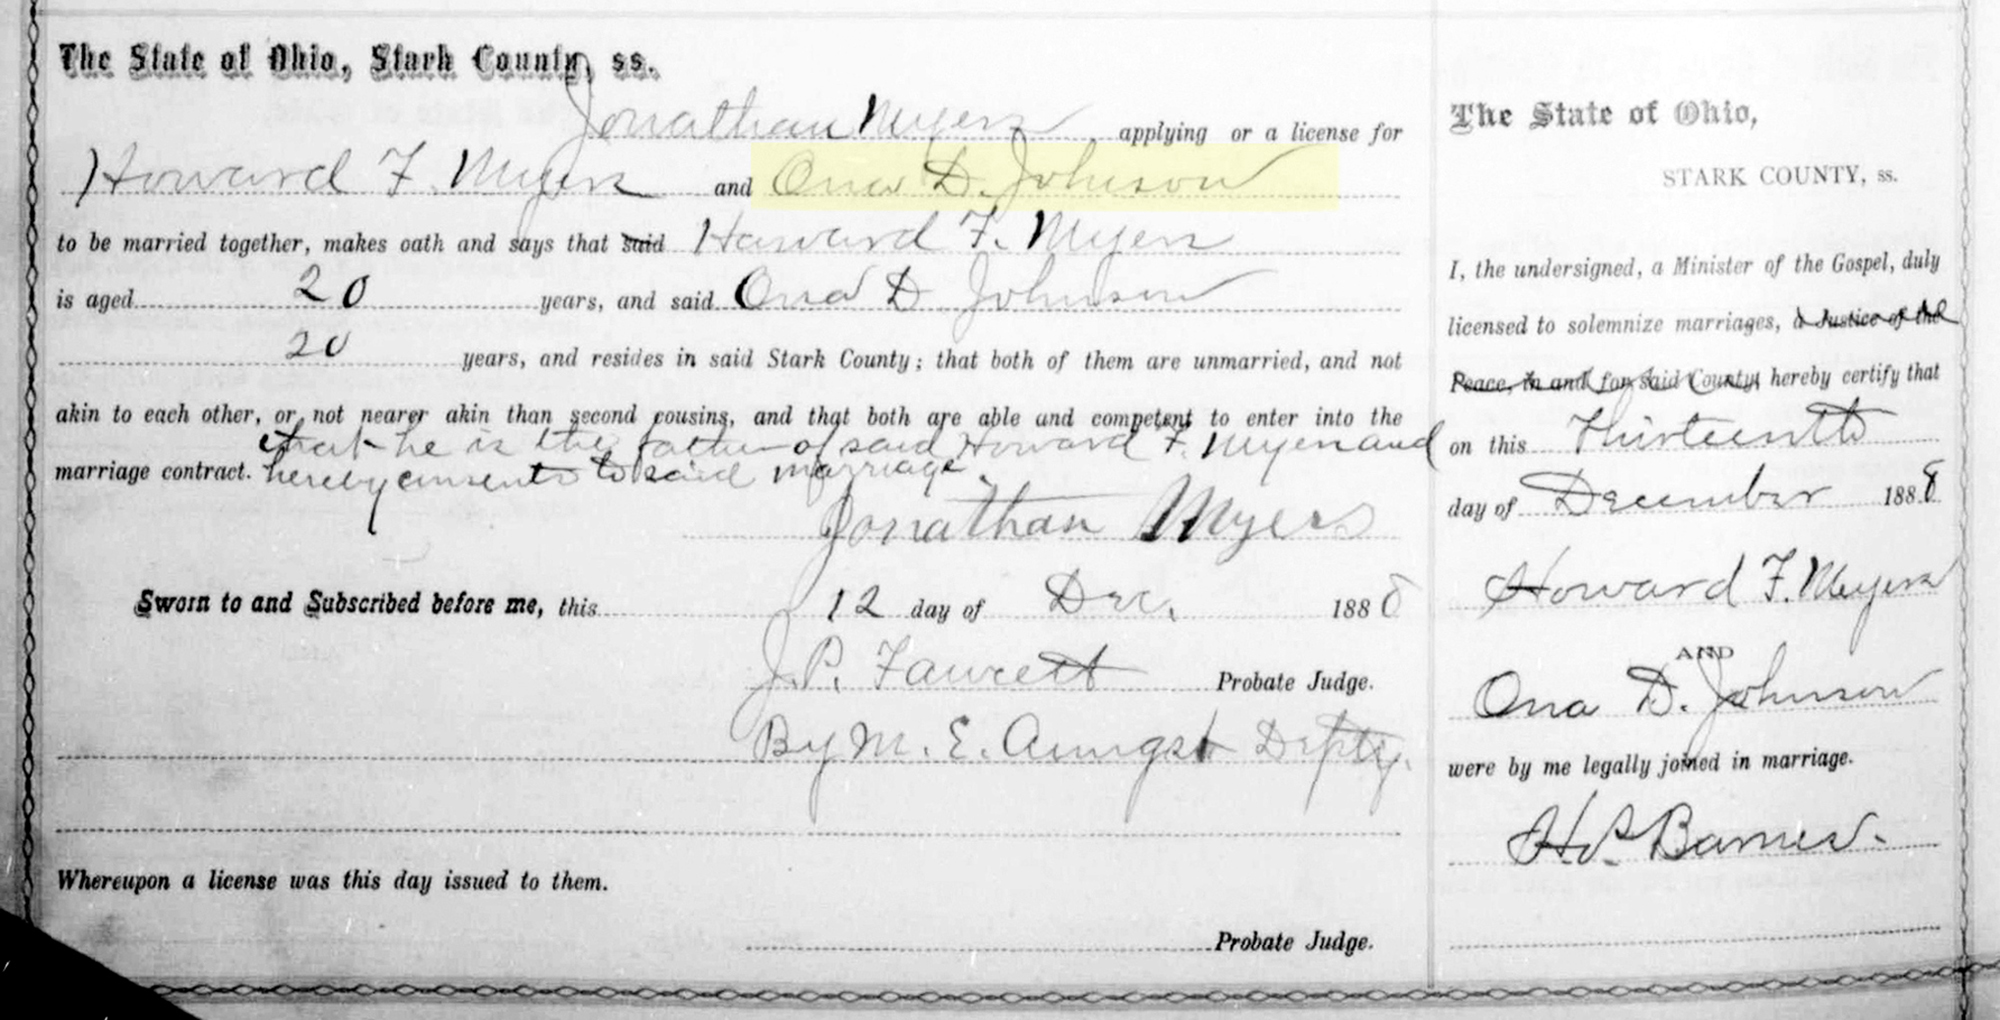 The State of Ohio, Stark County, ss.
Jonathan Myers applying or a license for
Howard F. Myers and Ona D. Johnson
to be married together, makes oath and says that said Howard F. Myers
is aged 20 years, and said Ona D Johnson
20 years, and resides in said Stark County; that both of them are unmarried, and not
akin to each other, or not nearer akin than second cousins, and that both are able and competent to enter into the
that he is the father of said Howard F. Myers and
marriage contract. hereby consents to said marriage
Jonathan Myers
Sworn to and Subscribed before me, this 12 day of Dec. 1888
J. P. Fawcett Probate Judge.
By M. E. Aungst Depty.
Whereupon a license was this day issued to them.
Probate Judge.
The State of Ohio,
STARK COUNTY, ss.
I, the undersigned, a Minister of the Gospel, duly
licensed to solemnize marriages, a Justice of the
Peace, in and for said County, hereby certify that
on this Thirteenth
day of December 1888
Howard F. Myers
AND
Ona D. Johnson
were by me legally joined in marriage.
Barnes.